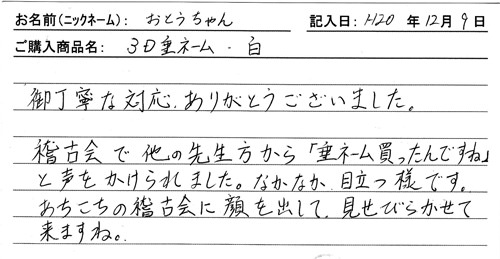 お名前(ニックネーム): おとうちゃん 記入日: H20 年 12 月 9 日
ご購入商品名: 3D垂ネーム・白
御丁寧な対応、ありがとうございました。
稽古会で他の先生方から「垂ネーム買ったんですね」
と声をかけられました。なかなか、目立つ様です。
あちこちの稽古会に顔を出して、見せびらかせて
来ますね。